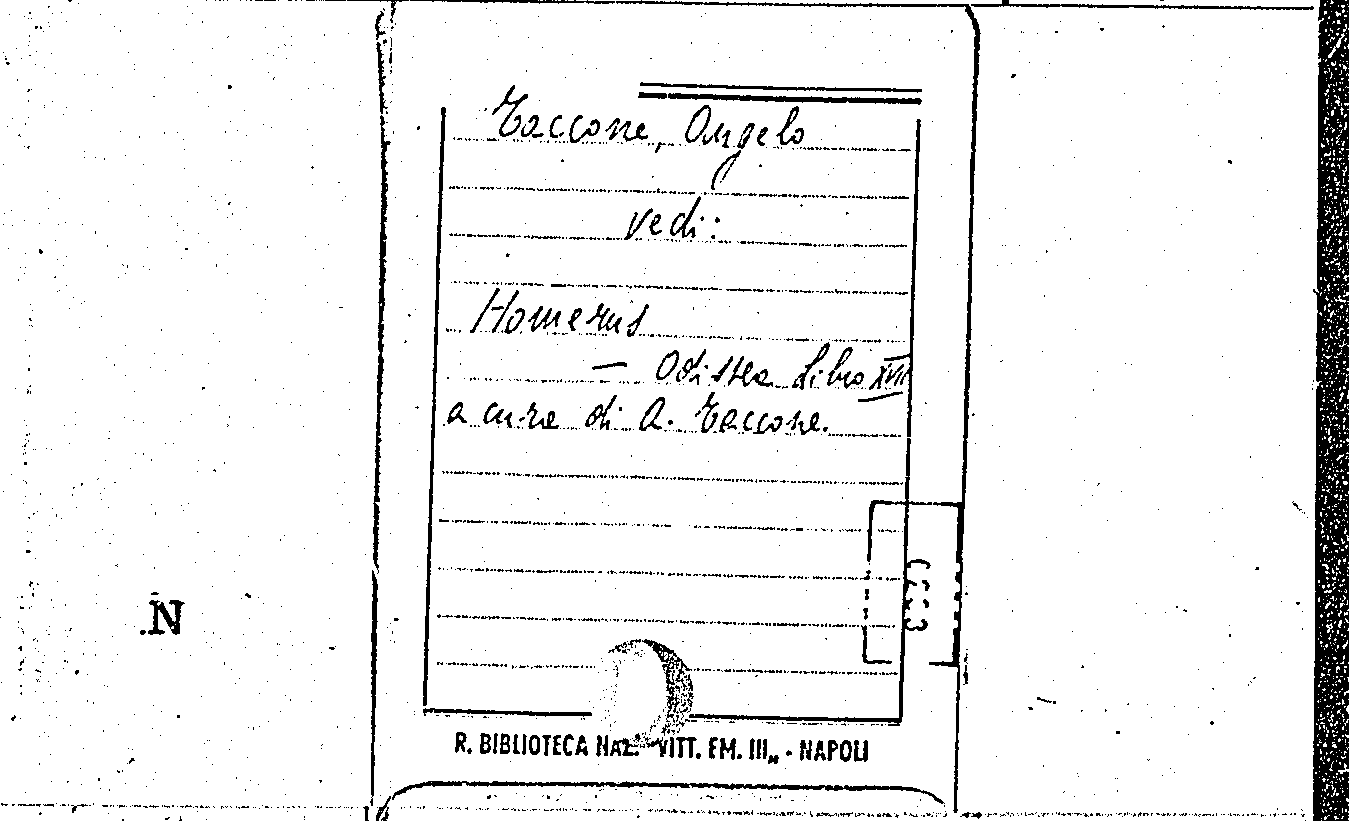 Taccone, Angelo
vedi:
Homerus
— Odissea Libro XVII
a cura di A. Taccone.
N
R. BIBLIOTECA NAZ. "VITT. EM. III„ - NAPOLI